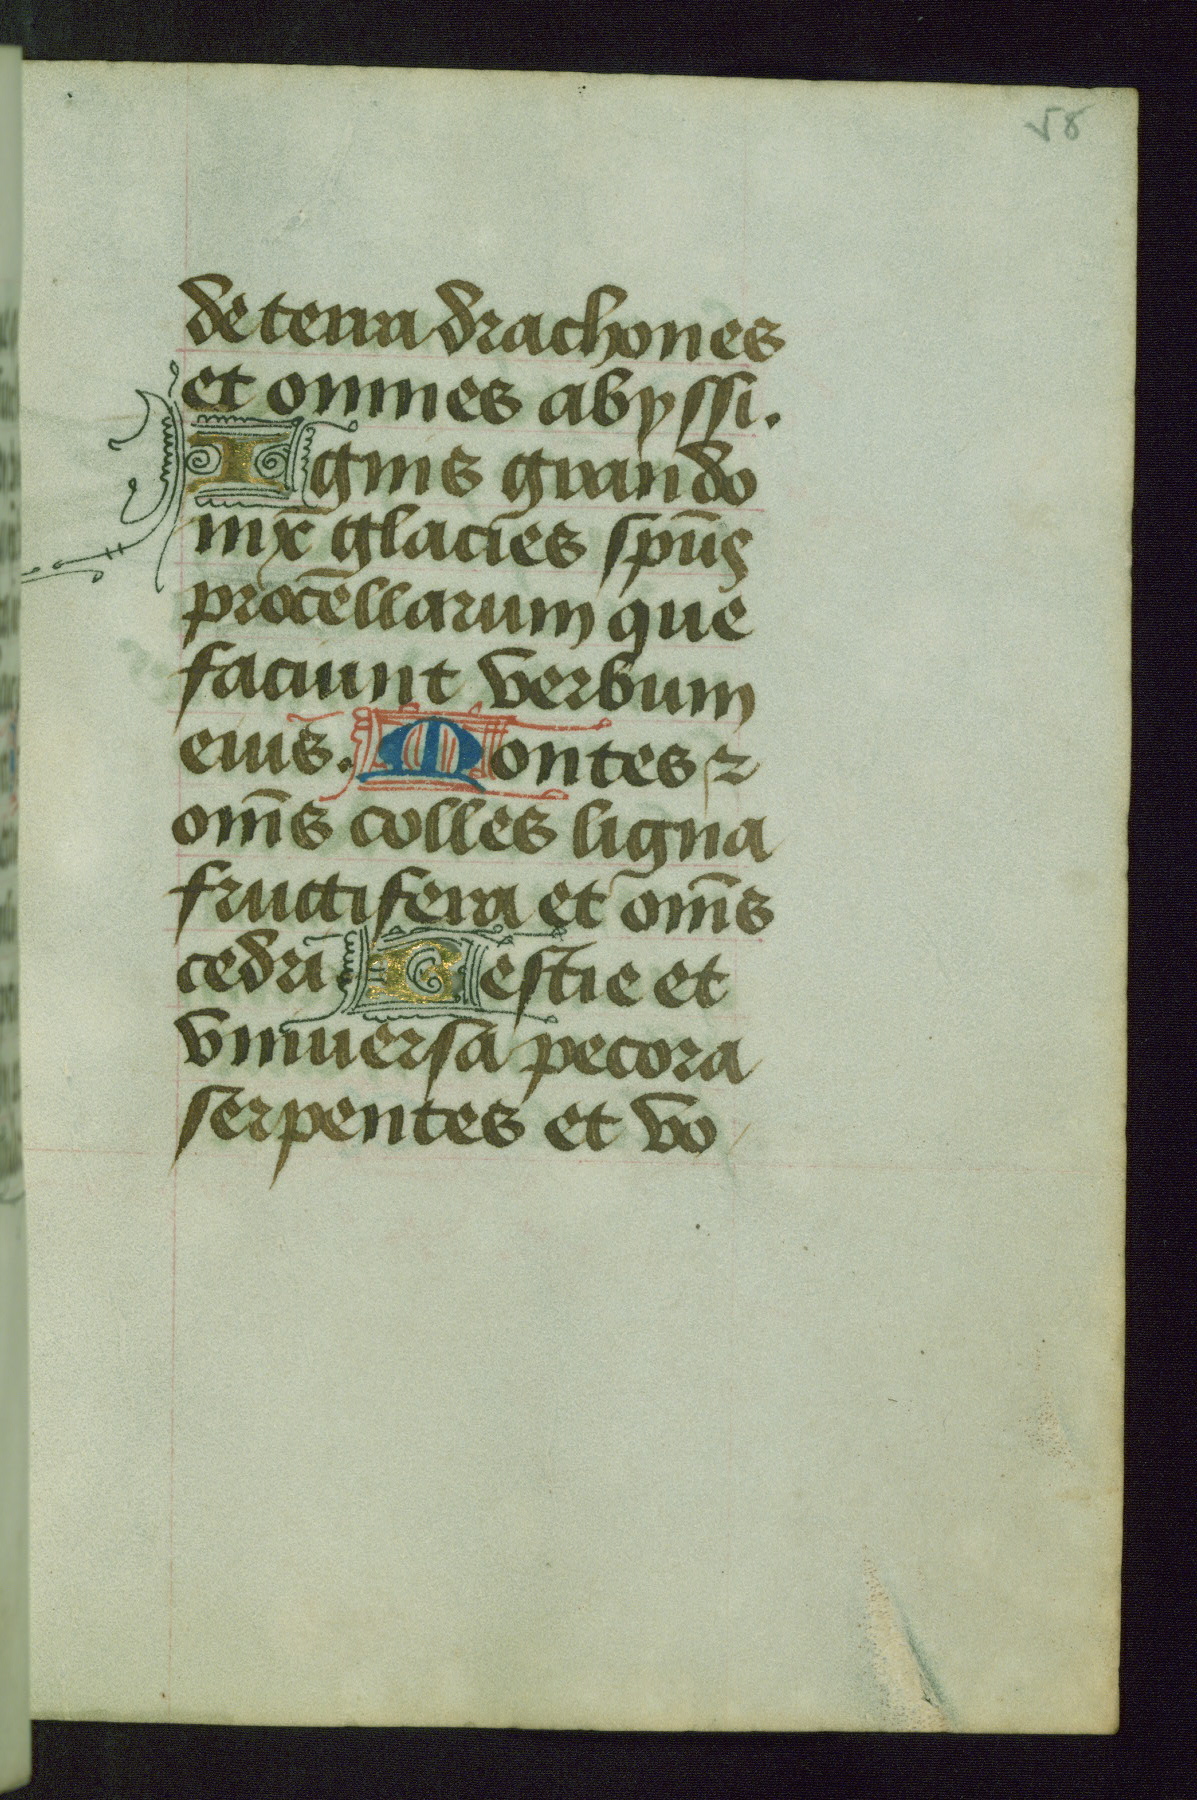 58
de terra drachones
et omnes abyssi.
Ignis grando
nix glacies spūs
procellarum que
faciunt verbum
eius. Montes ⁊
om̄s colles ligna
fructifera et om̄s
cedri Bestie et
vniuersa pecora
serpentes et vo